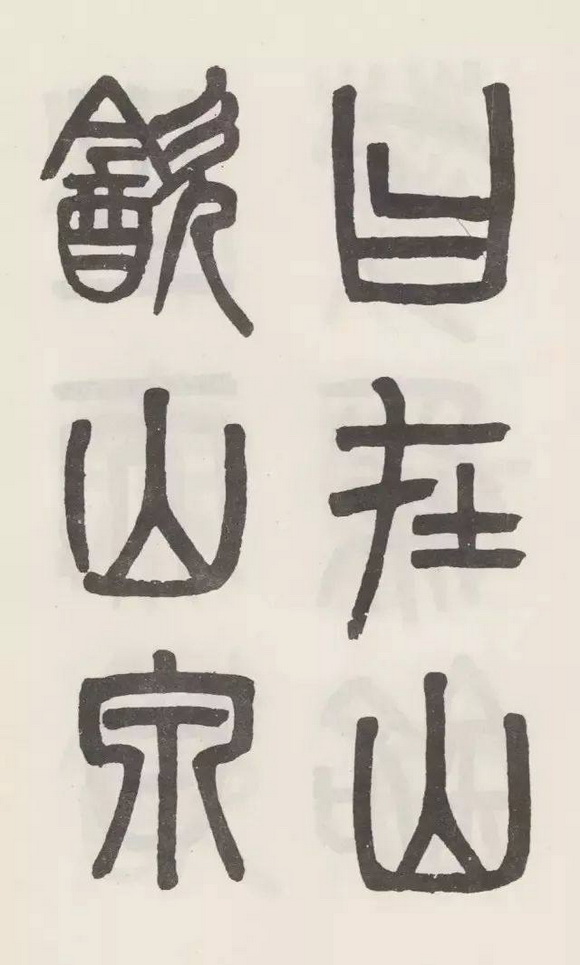 曰在山
飲山泉